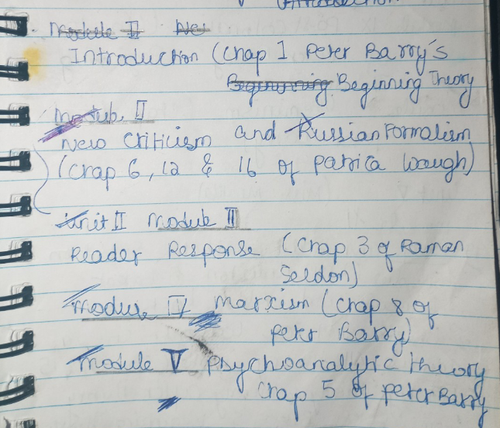 Module II New
Introduction (Chap 1 Peter Barry's
Begenning Beginning Theory
Module II
New Criticism and Russian Formalism
(Chap 6, 12 & 16 of Patrica Waugh)
Unit II Module III
Reader Response (Chap 3 of Raman
Seldon)
Module IV Marxism (Chap 8 of
Peter Barry)
Module V Psychoanalytic theory
Chap 5 of Peter Barry